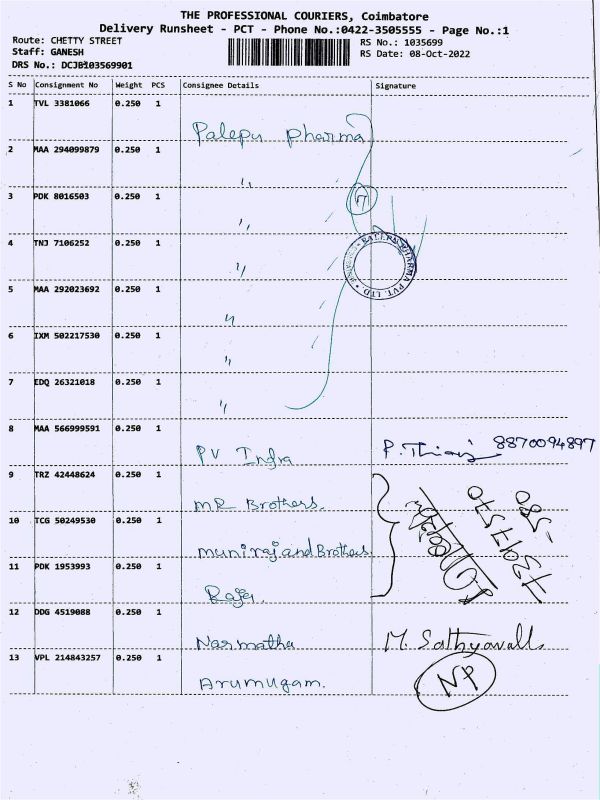 THE PROFESSIONAL COURIERS, Coimbatore
Delivery Runsheet - PCT - Phone No.:0422-3505555 - Page No.:1
Route: CHETTY STREET
RS No.: 1035699
Staff: GANESH
RS Date: 08-Oct-2022
DRS No.: DCJB103569901
S No Consignment No Weight PCS Consignee Details Signature
1 TVL 3381066 0.250 1
Palepu Pharma
2 MAA 294099879 0.250 1
"
3 PDK 8016503 0.250 1
7
"
4 TNJ 7106252 0.250 1
PALEPU PHARMA PVT. LTD
"
5 MAA 292023692 0.250 1
"
6 IXM 502217530 0.250 1
"
7 EDQ 26321018 0.250 1
"
8 MAA 566999591 0.250 1
PV Infra 8870094897
9 TRZ 42448624 0.250 1
MR Brothers.
10 TCG 50249530 0.250 1
Muniraj and Brothers
11 PDK 1953993 0.250 1
Raja.
12 DDG 4519088 0.250 1
Narmatha M. Sathyavalli
13 VPL 214843257 0.250 1
Arumugam. NP